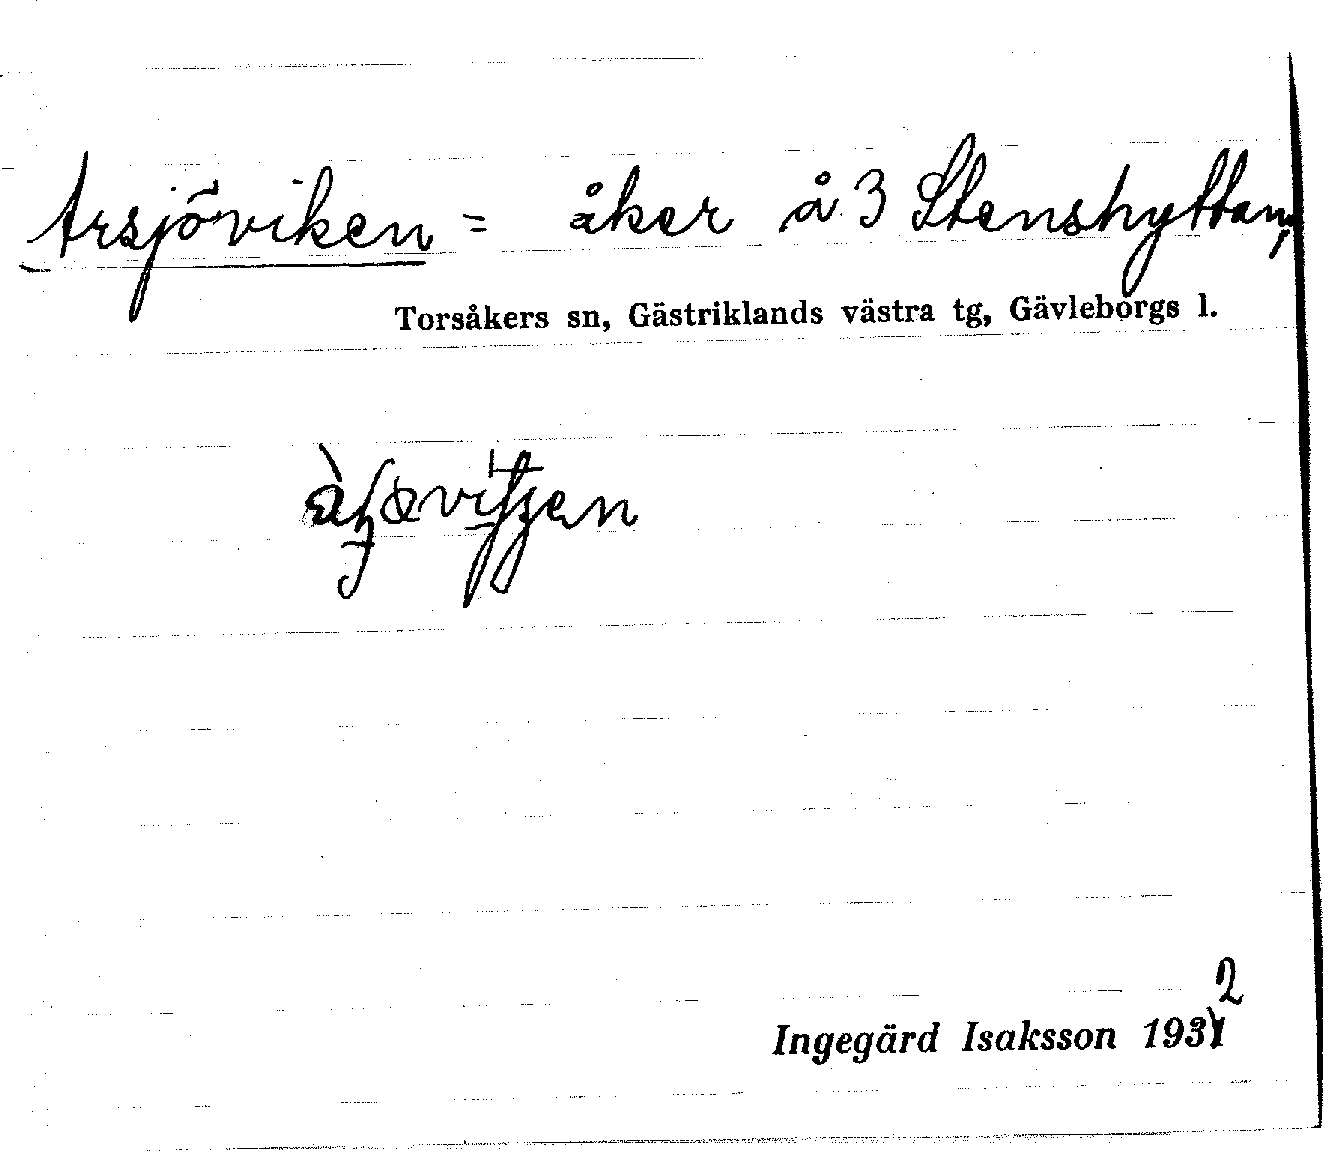 Arsjöviken = åker å 3 Stenshyttan,
Torsåkers sn, Gästriklands västra tg, Gävleborgs l.
2
Ingegärd Isaksson 1931